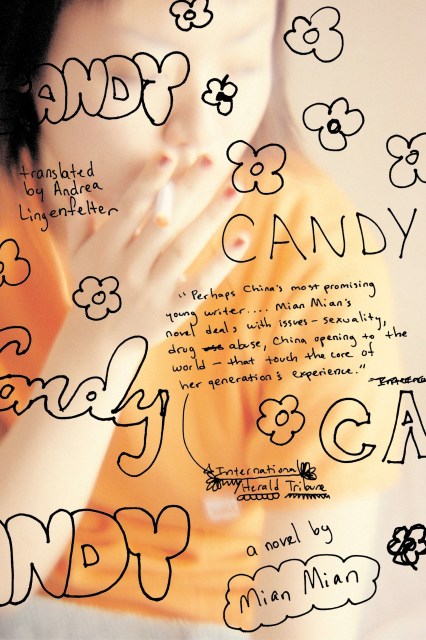 CANDY
translated
by Andrea
Lingenfelter
CANDY
"Perhaps China's most promising
young writer.... Mian Mian's
novel deals with issues – sexuality,
drug abuse, China opening to the
world – that touch the core of
her generation's experience."
Candy
CA
International
Herald Tribune
NDY
a novel by
Mian Mian